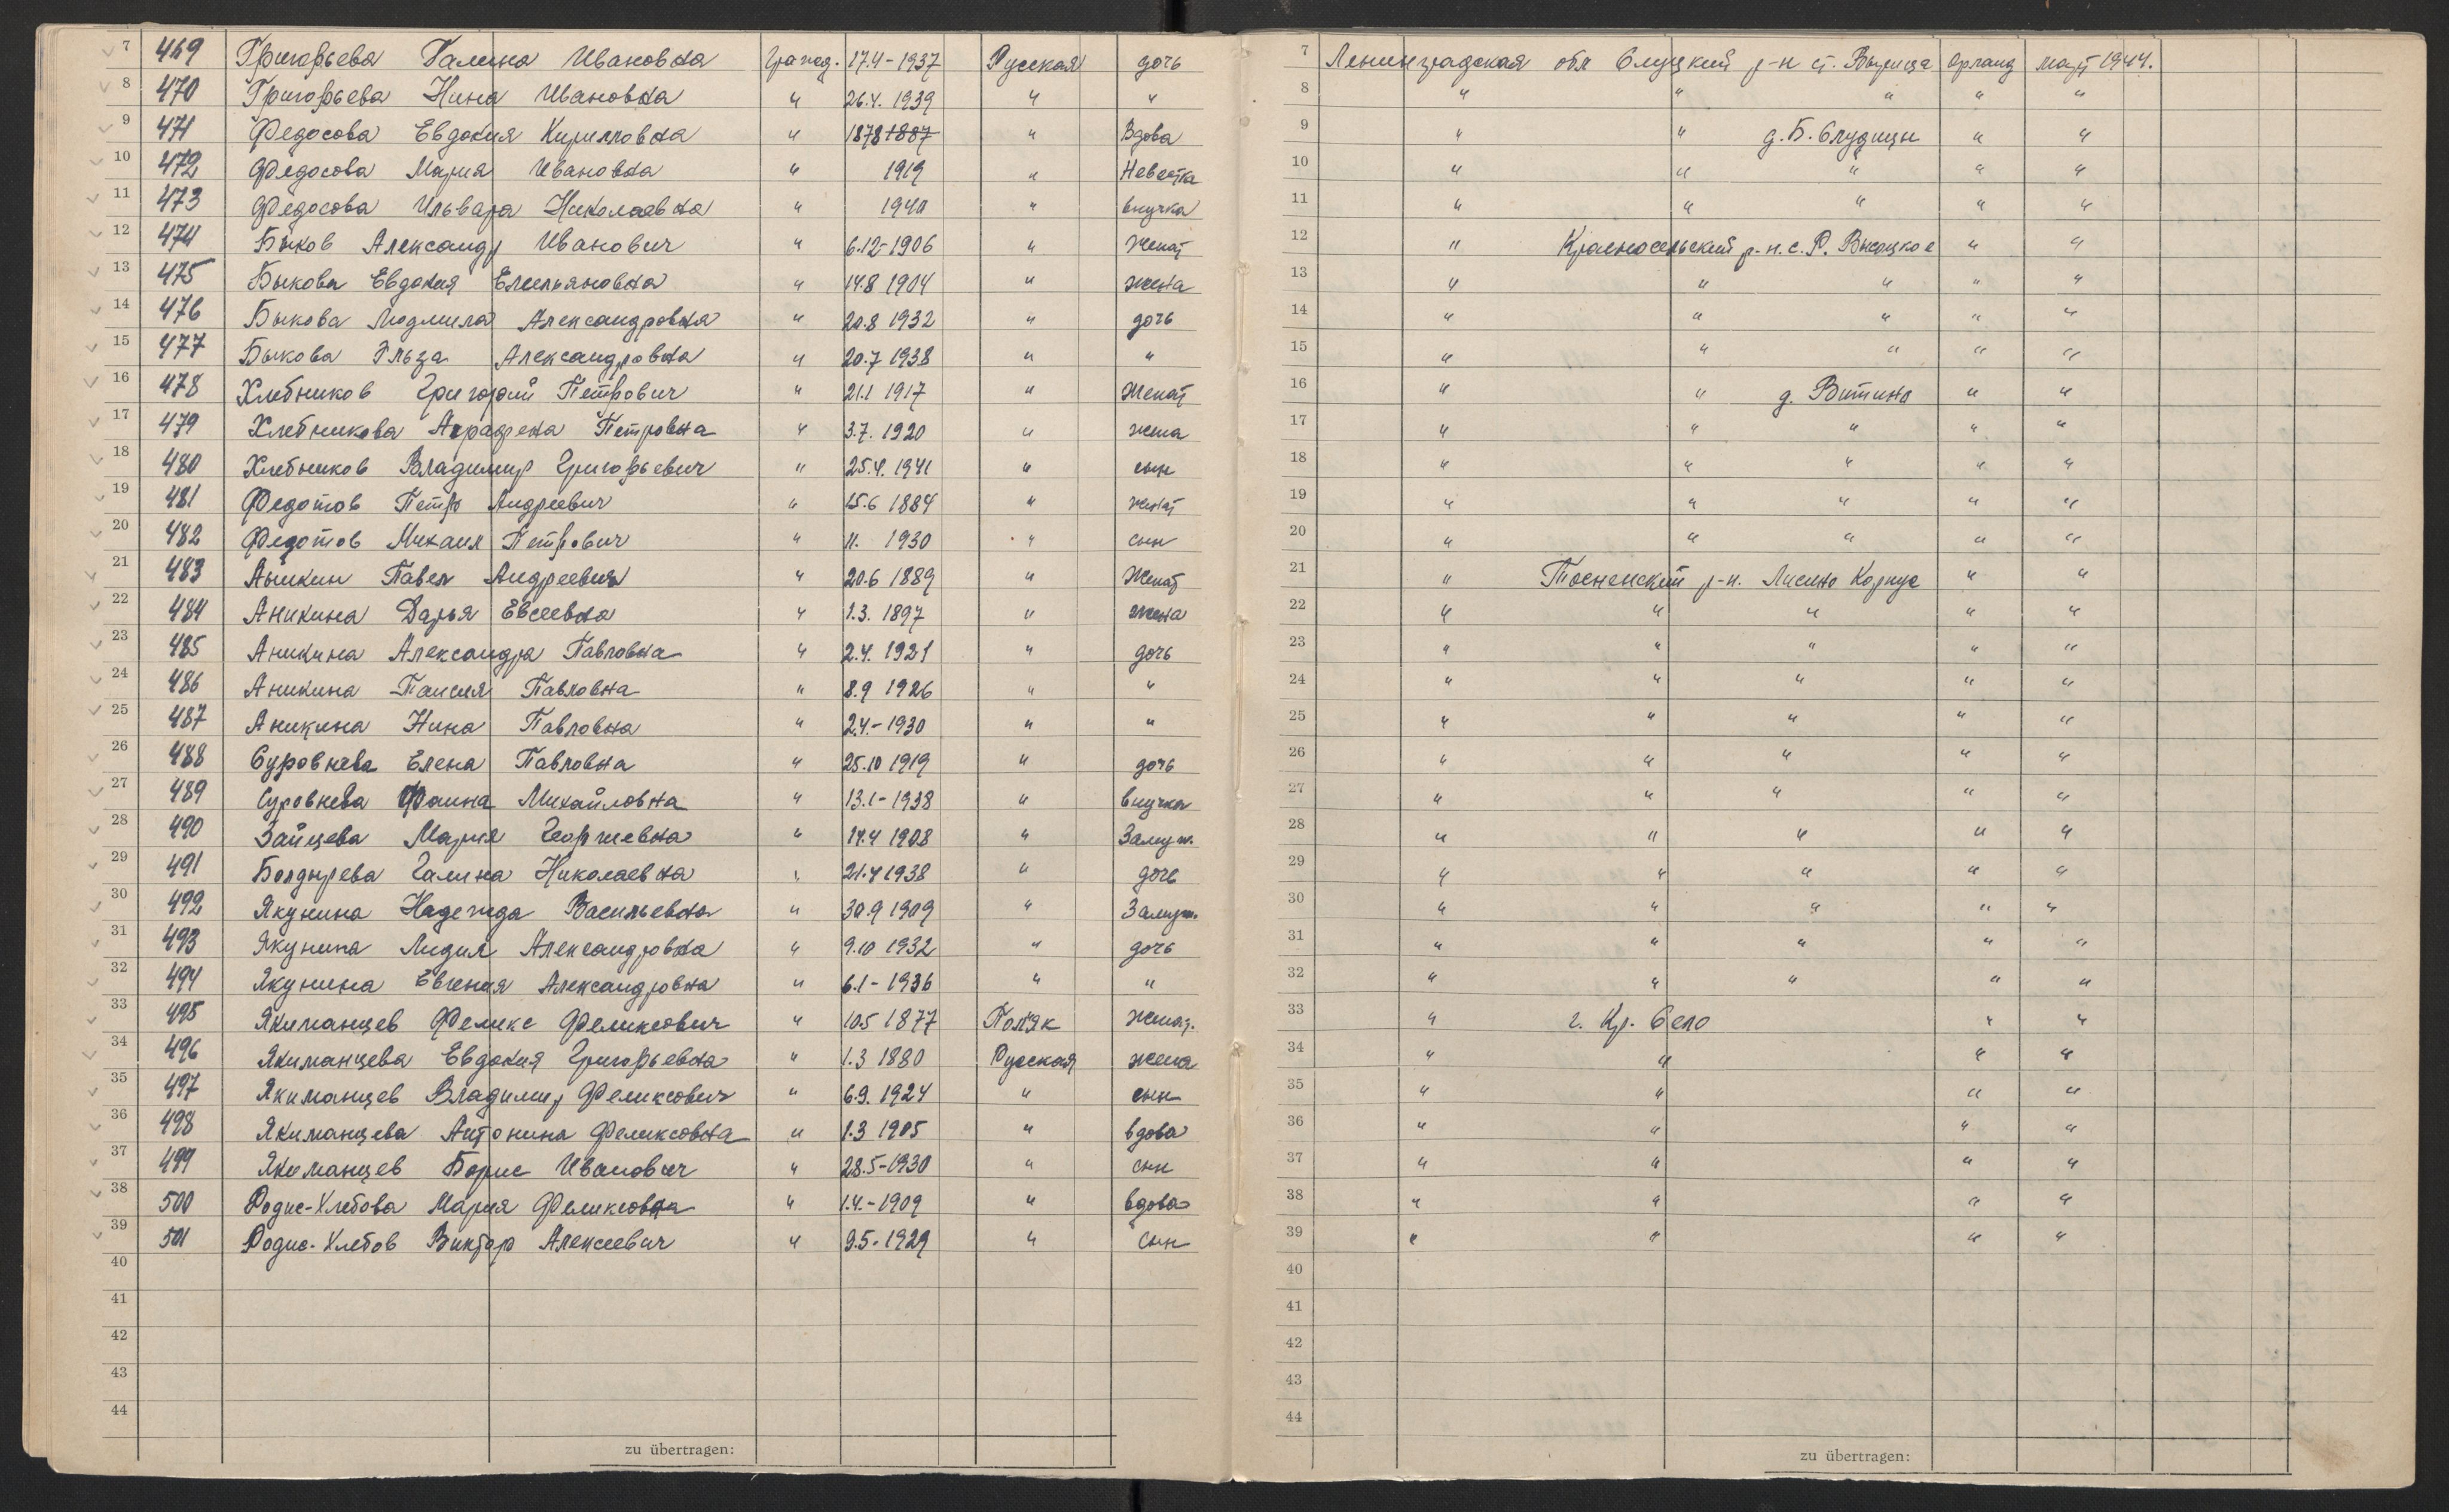 7 469 Григорьева Галина Ивановна гражд. 17.4-1937 Русская дочь
8 470 Григорьева Нина Ивановна " 26.4. 1939 " "
9 471 Федосова Евдокия Кирилловна " 1878 1887 " Вдова
10 472 Федосова Мария Ивановна " 1919 " Невестка
11 473 Федосова Ильвара Николаевна " 1940 " внучка
12 474 Быков Александр Иванович " 6.12-1906 " женат
13 475 Быкова Евдокия Емельяновна " 14.8 1904 " жена
14 476 Быкова Людмила Александровна " 20.8 1932 " дочь
15 477 Быкова Эльза Александровна " 20.7 1938 " "
16 478 Хлебников Григорий Петрович " 21.1 1917 " Женат
17 479 Хлебникова Аграфена Петровна " 3.7. 1920 " жена
18 480 Хлебников Владимир Григорьевич " 25.4. 1941 " сын
19 481 Федотов Петр Андреевич " 15.6 1884 " женат
20 482 Федотов Михаил Петрович " 11. 1930 " сын
21 483 Аникин Павел Андреевич " 20.6 1889 " Женат
22 484 Аникина Дарья Евсеевна " 1.3. 1897 " жена
23 485 Аникина Александра Павловна " 2.4. 1921 " дочь
24 486 Аникина Таисия Павловна " 8.9 1926 " "
25 487 Аникина Нина Павловна " 2.4.-1930 " "
26 488 Суровнева Елена Павловна " 25.10 1919 " дочь
27 489 Суровнева Фаина Михайловна " 13.1-1938 " внучка
28 490 Зайцева Мария Георгиевна " 14.4 1908 " Замуж.
29 491 Болдырева Галина Николаевна " 21.4 1938 " дочь
30 492 Якунина Надежда Васильевна " 30.9 1909 " Замуж.
31 493 Якунина Лидия Александровна " 9.10 1932 " дочь
32 494 Якунина Евгения Александровна " 6.1-1936 " "
33 495 Якиманцев Феликс Феликсович " 10.5 1877 Поляк женат.
34 496 Якиманцева Евдокия Григорьевна " 1.3 1880 Русская жена
35 497 Якиманцев Владимир Феликсович " 6.9. 1924 " сын
36 498 Якиманцева Антонина Феликсовна " 1.3 1905 " вдова
37 499 Якиманцев Борис Иванович " 28.5-1930 " сын
38 500 Родис-Хлебова Мария Феликсовна " 1.4.-1909 " вдова
39 501 Родис-Хлебов Виктор Алексеевич " 9.5-1929 " сын
40
41
42
43
44
zu übertragen:
7 Ленинградская обл Слуцкий р-н ст. Вырица март 1944.
8 " " " " "
9 " " д. Б. Слудицы " "
10 " " " " "
11 " " " " "
12 " Красносельский р-н. с. Р. Высоцкое " "
13 " " " " "
14 " " " " "
15 " " " " "
16 " " д. Витино " "
17 " " " " "
18 " " " " "
19 " " " " "
20 " " " " "
21 " Тосненский р-н. Лисино Корпус " "
22 " " " " "
23 " " " " "
24 " " " " "
25 " " " " "
26 " " " " "
27 " " " " "
28 " " " " "
29 " " " " "
30 " " " " "
31 " " " " "
32 " " " " "
33 " г. Кр. Село " "
34 " " " "
35 " " " "
36 " " " "
37 " " " "
38 " " " "
39 " " " "
40
41
42
43
44
zu übertragen: